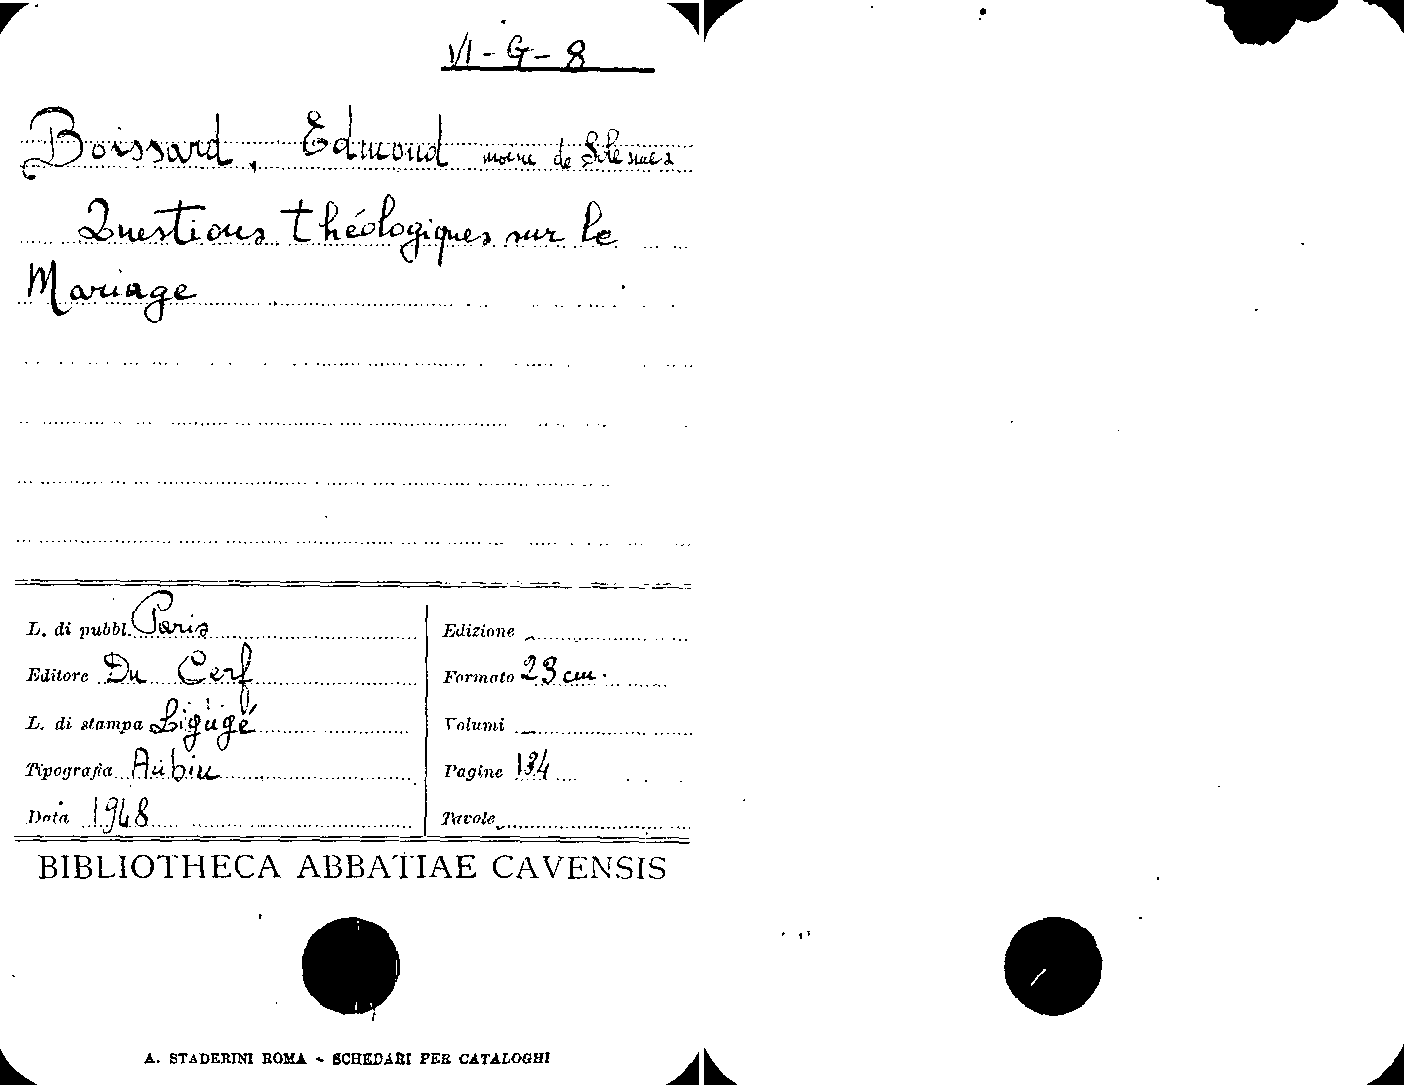 VI-G-8
Boissard, Edmond moine de Solesmes
Questions théologiques sur le
Mariage
L. di pubbl. Paris
Editore Du Cerf
L. di stampa Ligugé
Tipografia Aubin
Data 1948
Edizione
Formato 23 cm.
Volumi
Pagine 134
Tavole
BIBLIOTHECA ABBATIAE CAVENSIS
A. STADERINI ROMA - SCHEDARI PER CATALOGHI